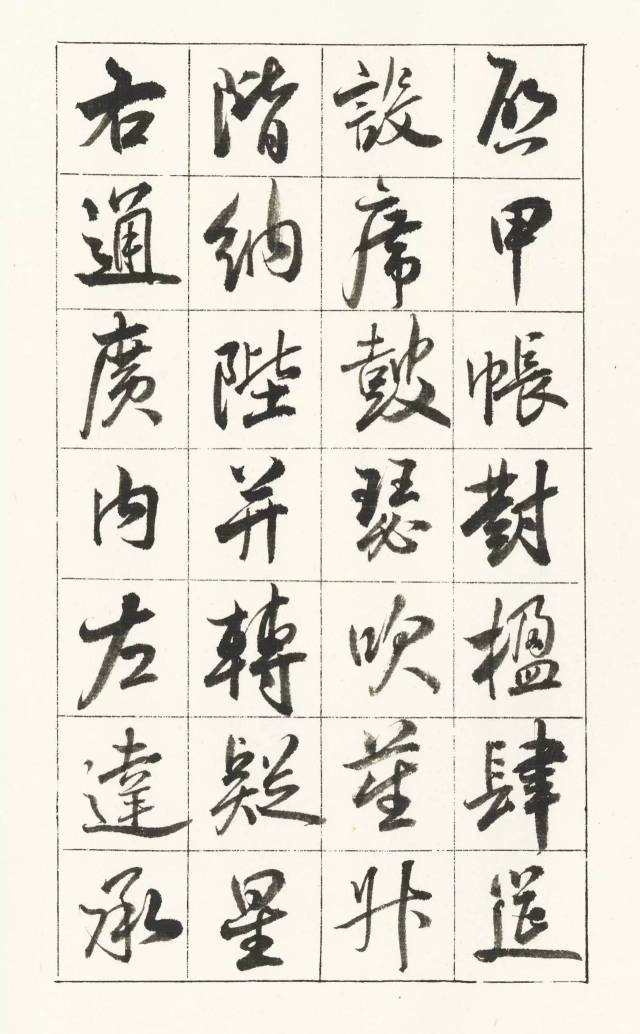 启甲帳對楹肆筵
設席鼓瑟吹笙升
階納陛并轉疑星
右通廣内左達承